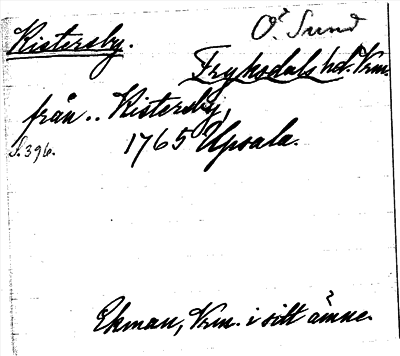 Kistersby. Ö. Sund
Fryksdals hd. Vrm.
från .. Kistersby,
S. 396. 1765 Upsala.
Ekman, Vrm. i sitt ämne.